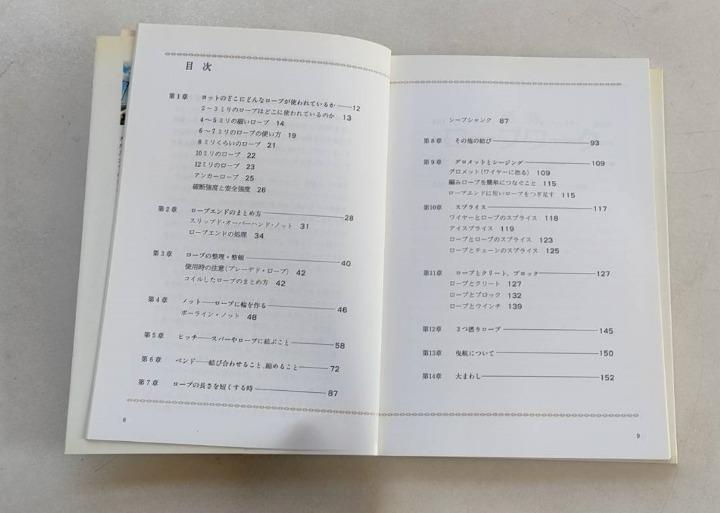 目次
第1章 ヨットのどこにどんなロープが使われているか——12
2〜3ミリのロープはどこに使われているのか 13
4〜5ミリの細いロープ 14
6〜7ミリのロープの使い方 19
8ミリくらいのロープ 21
10ミリのロープ 22
12ミリのロープ 23
アンカーロープ 25
破断強度と安全強度 26
第2章 ロープエンドのまとめ方——28
スリップド・オーバーハンド・ノット 31
ロープエンドの処理 34
第3章 ロープの整理・整頓——40
使用時の注意(ブレーデッド・ロープ) 42
コイルしたロープのまとめ方 42
第4章 ノット——ロープに輪を作る——46
ボーライン・ノット 48
第5章 ヒッチ——スパーやロープに結ぶこと——58
第6章 ベンド——結び合わせること、縮めること——72
第7章 ロープの長さを短くする時——87
8
シープシャンク 87
第8章 その他の結び——93
第9章 グロメットとシージング——109
グロメット(ワイヤーに径る) 109
編みロープを簡単につなぐこと 115
ロープエンドに短いロープをつぎ足す 115
第10章 スプライス——117
ワイヤーとロープのスプライス 118
アイスプライス 119
ロープとロープのスプライス 123
ロープとチェーンのスプライス 125
第11章 ロープとクリート、ブロック——127
ロープとクリート 127
ロープとブロック 132
ロープとウインチ 139
第12章 3つ撚りロープ——145
第13章 曳航について——150
第14章 大まわし——152
9